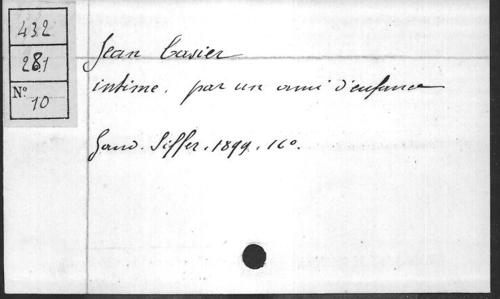 432
281
N° 10
Jean Casier
intime. par un ami d'enfance
Gand. Siffer. 1899. 16°.